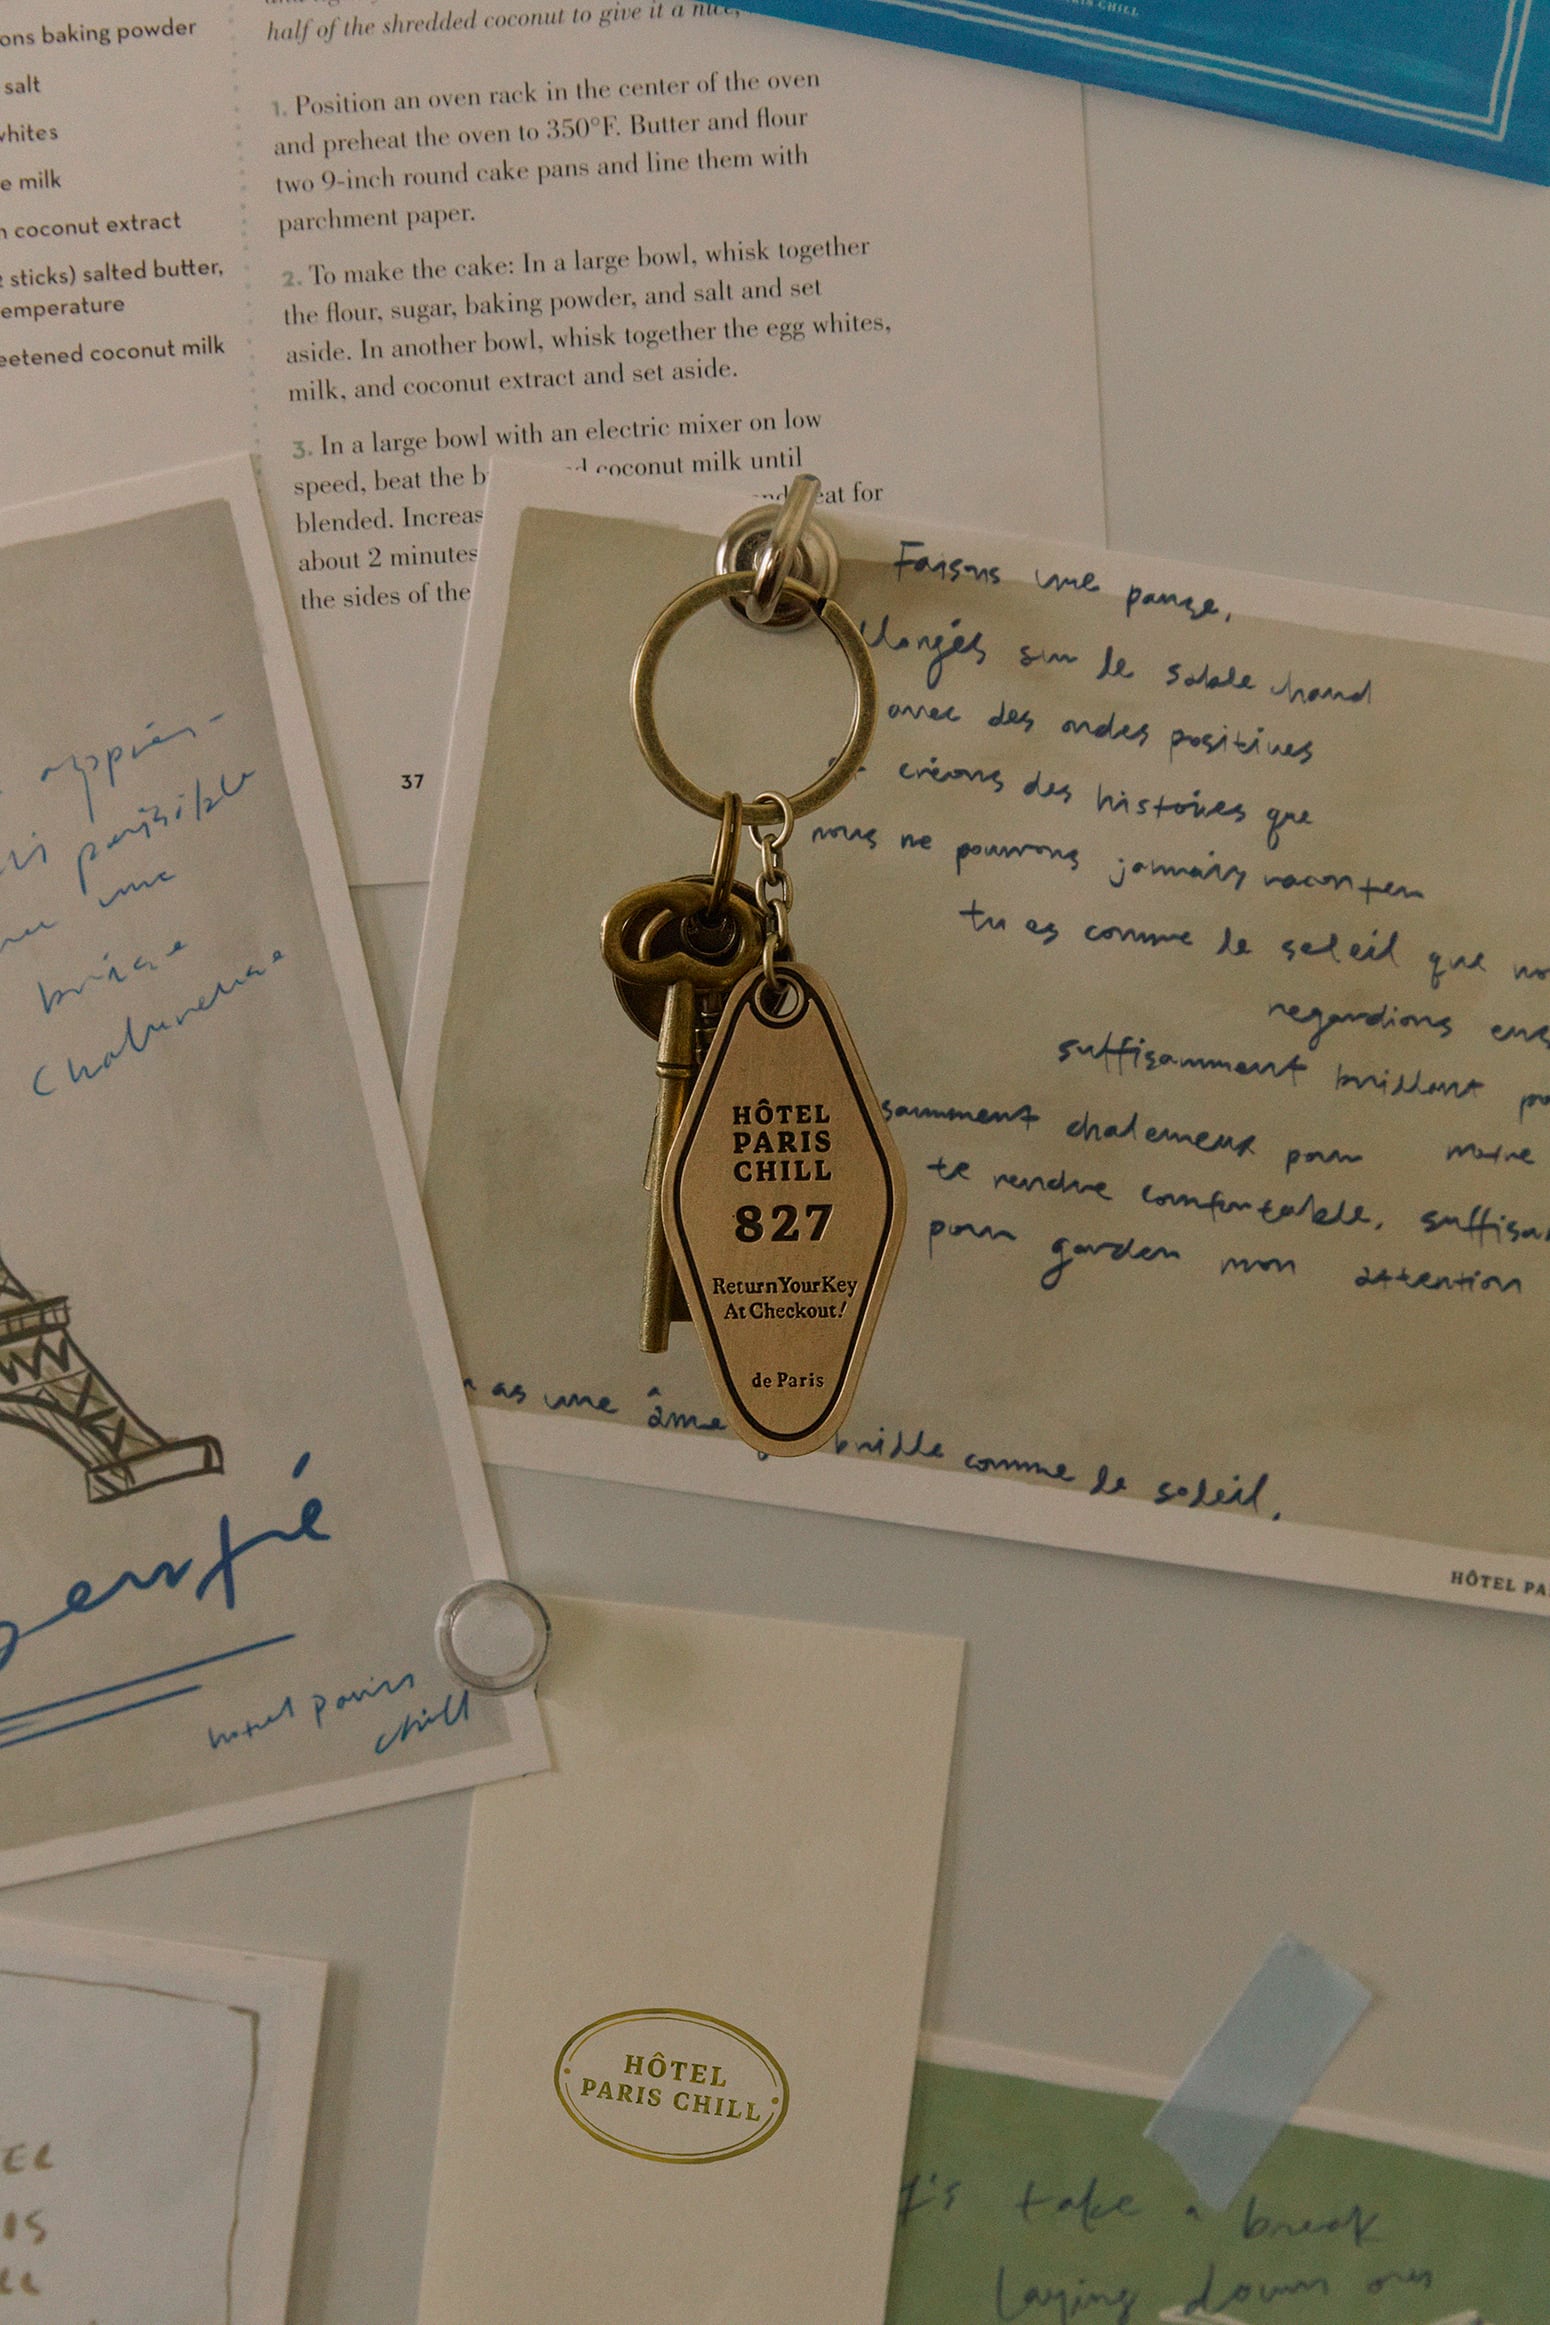 ons baking powder
salt
whites
e milk
coconut extract
sticks) salted butter,
emperature
eetened coconut milk
half of the shredded coconut to give it a nice,
1. Position an oven rack in the center of the oven
and preheat the oven to 350°F. Butter and flour
two 9-inch round cake pans and line them with
parchment paper.
2. To make the cake: In a large bowl, whisk together
the flour, sugar, baking powder, and salt and set
aside. In another bowl, whisk together the egg whites,
milk, and coconut extract and set aside.
3. In a large bowl with an electric mixer on low
speed, beat the b d coconut milk until
blended. Increas eat for
about 2 minutes
the sides of the
37
CHILL
Faisons une pause,
allongés sur le sable chaud
avec des ondes positives
créons des histoires que
nous ne pourrons jamais raconter
tu es comme le soleil que no
regardions ens
suffisamment brillant po
samment chaleureux pour notre
te rendre comfortable, suffisa
pour garder mon attention
as une âme brille comme le soleil.
HÔTEL PA
HÔTEL
PARIS
CHILL
827
Return Your Key
At Checkout!
de Paris
après-
paisible
une
brise
chaleureuse
hotel paris
chill
HÔTEL
PARIS CHILL
EL
IS
LL
's take a break
laying down